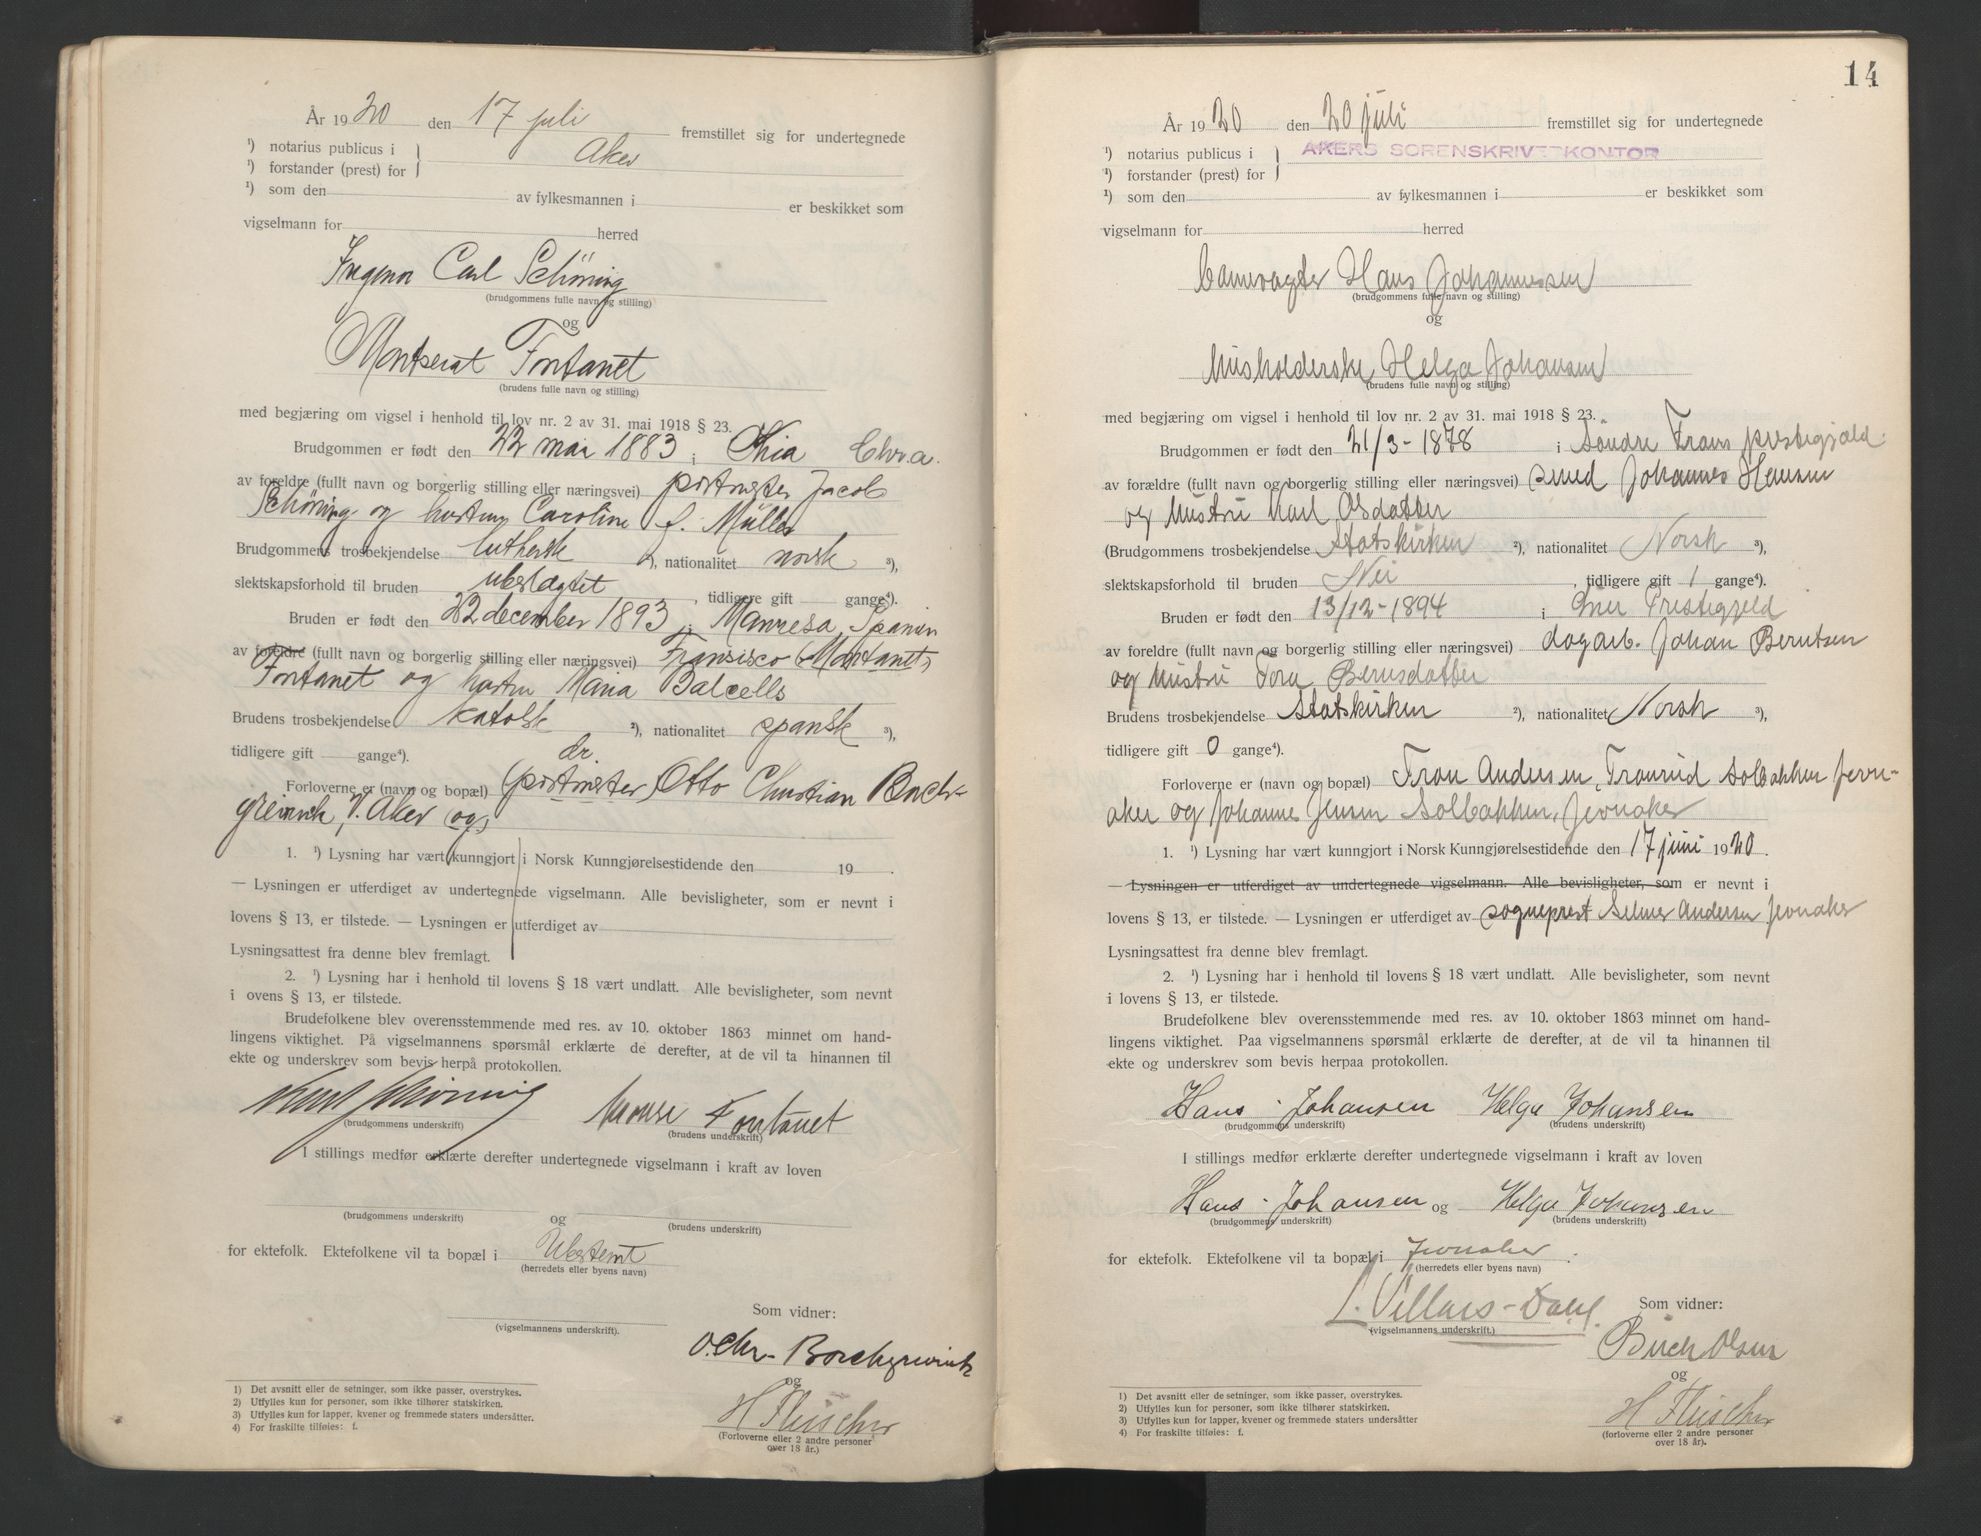 År 1920 den 17 juli fremstillet sig for undertegnede
¹) notarius publicus i Aker
¹) forstander (prest) for
¹) som den av fylkesmannen i er beskikket som
vigselmann for herred
Ingeniør Carl Schöning
(brudgommens fulle navn og stilling)
og
Montserat Fontanet
(brudens fulle navn og stilling)
med begjæring om vigsel i henhold til lov nr. 2 av 31. mai 1918 § 23.
Brudgommen er født den 22 mai 1883 i Kria Chr.a.
av foreldre (fullt navn og borgerlig stilling eller næringsvei) postmester Jacob
Schöning og hustru Caroline f. Müller
Brudgommens trosbekjendelse luthersk ²), nationalitet norsk ³),
slektskapsforhold til bruden ubeslægtet, tidligere gift gange⁴).
Bruden er født den 22 december 1893 i Manresa, Spanien
av foreldre (fullt navn og borgerlig stilling eller næringsvei) Fransisco (Montanet)
Fontanet og hustru Maria Balcells
Brudens trosbekjendelse katolsk ²), nationalitet spansk ³),
tidligere gift gange⁴). dr.
Forloverne er (navn og bopæl) (postmester) Otto Christian Borch-
grevink, V. Aker (og)
1. ¹) Lysning har vært kunngjort i Norsk Kunngjørelsestidende den 19 .
— Lysningen er utferdiget av undertegnede vigselmann. Alle bevisligheter, som er nevnt i
lovens § 13, er tilstede. — Lysningen er utferdiget av
Lysningsattest fra denne blev fremlagt.
2. ¹) Lysning har i henhold til lovens § 18 vært undlatt. Alle bevisligheter, som nevnt
i ovens § 13, er tilstede.
Brudefolkene blev overensstemmende med res. av 10. oktober 1863 minnet om hand-
lingens viktighet. På vigselmannens spørsmål erklærte de derefter, at de vil ta hinannen til
ekte og underskrev som bevis herpå protokollen.
Carl Schöning Monse Fontanet
(brudgommens underskrift) (brudens underskrift)
I stillings medfør erklærte derefter undertegnede vigselmann i kraft av loven
og
(brudgommens underskrift) (brudens underskrift)
for ektefolk. Ektefolkene vil ta bopæl i Ubestemt
(herredets eller byens navn)
Som vidner:
(vigselmannens underskrift).
O. Chr. Borchgrevink
og
H Fleischer
(Forloverne eller 2 andre personer
over 18 år.)
1) Det avsnitt eller de setninger, som ikke passer, overstrykes.
2) Utfylles kun for personer, som ikke tilhører statskirken.
3) Utfylles kun for lapper, kvener og fremmede staters undersåtter.
4) For fraskilte tilføies: f.
14
År 1920 den 20 juli fremstillet sig for undertegnede
¹) notarius publicus i AKERS SORENSKRIVERKONTOR
¹) forstander (prest) for
¹) som den av fylkesmannen i er beskikket som
vigselmann for herred
Banevogter Hans Johannessen
(brudgommens fulle navn og stilling)
og
husholderske Helga Johansen
(brudens fulle navn og stilling)
med begjæring om vigsel i henhold til lov nr. 2 av 31. mai 1918 § 23.
Brudgommen er født den 21/3-1878 i Söndre prestegjeld.
av forældre (fullt navn og borgerlig stilling eller næringsvei) smed Johannes Hansen
og hustru Kari Olsdatter
(Brudgommens trosbekjendelse Statskirken ²), nationalitet Norsk ³),
slektskapsforhold til bruden Nei, tidligere gift 1 gange⁴).
Bruden er født den 13/12-1894 i Prestegjeld
av foreldre (fullt navn og borgerlig stilling eller næringsvei) dagarb. Johan Berntsen
og hustru Tora Berntsdatter
Brudens trosbekjendelse Statskirken ²), nationalitet Norsk ³),
tidligere gift 0 gange⁴).
Forloverne er (navn og bopæl) Andersen, Tronrud Solbakken Jevn-
aker og Johannes Jensen Solbakken, Jevnaker
1. ¹) Lysning har vært kunngjort i Norsk Kunngjørelsestidende den 17 juni 1920.
— Lysningen er utferdiget av undertegnede vigselmann. Alle bevisligheter, som er nevnt i
lovens § 13, er tilstede. — Lysningen er utferdiget av sogneprest Selmer Andersen Jevnaker
Lysningsattest fra denne blev fremlagt.
2. ¹) Lysning har i henhold til lovens § 18 vært undlatt. Alle bevisligheter, som nevnt
i lovens § 13, er tilstede.
Brudefolkene blev overensstemmende med res. av 10. oktober 1863 minnet om hand-
lingens viktighet. Paa vigselmannens spørsmål erklærte de derefter, at de vil ta hinannen til
ekte og underskrev som bevis herpaa protokollen.
Hans Johansen Helga Johansen
(brudgommens underskrift) (brudens underskrift)
I stillings medfør erklærte derefter undertegnede vigselmann i kraft av loven
Hans Johansen og Helga Johansen
(brudgommens underskrift) (brudens underskrift)
for ektefolk. Ektefolkene vil ta bopæl i Jevnaker.
(herredets eller byens navn)
L. Villars-Dahl. Som vidner:
(vigselmannens underskrift.)
Birch Olsen
og
H Fleischer
(forloverne eller 2 andre personer
over 18 år).
1) Det avsnitt eller de setninger, som ikke passer, overstrykes.
2) Utfylles kun for personer, som ikke tilhører statskirken.
3) Utfylles kun for lapper, kvener og fremmede staters undersåtter
4) For fraskilte tilføies: f.